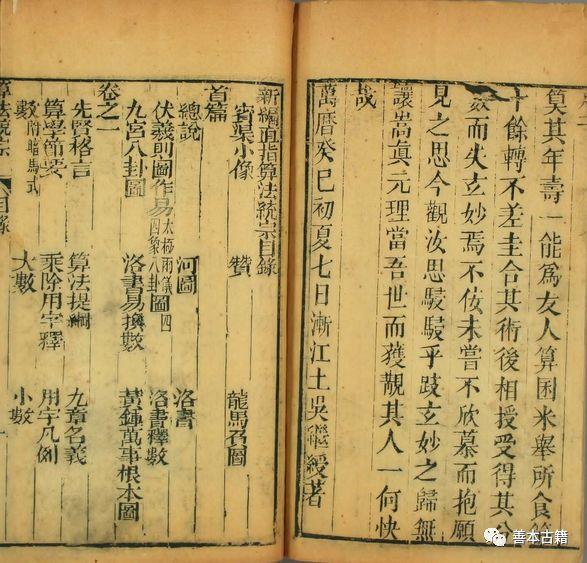 筭其年壽一能爲友人算囷米舉所食
十餘轉不差圭合其術後相授受得其分
數而失玄妙焉不佞未嘗不欣慕而抱願
見之思今觀汝思駸駸乎跂玄妙之歸無
讓嵩眞元理當吾世而獲覯其人一何快
哉
萬曆癸巳初夏七日漸江士吳繼綬著
新編直指算法統宗目錄
賓渠小像 贊 龍馬負圖
首篇
總說 河圖 洛書
伏羲則圖作易 太極兩儀四四象八卦圖 洛書釋數
九宮八卦圖 洛書易換數 黃鍾萬事根本圖
卷之一
先賢格言 算法提綱 九章名義
算學節要 乘除用字釋 用字凡例
數附暗馬式 大數 小數
算法統宗 目錄 一
善本古籍